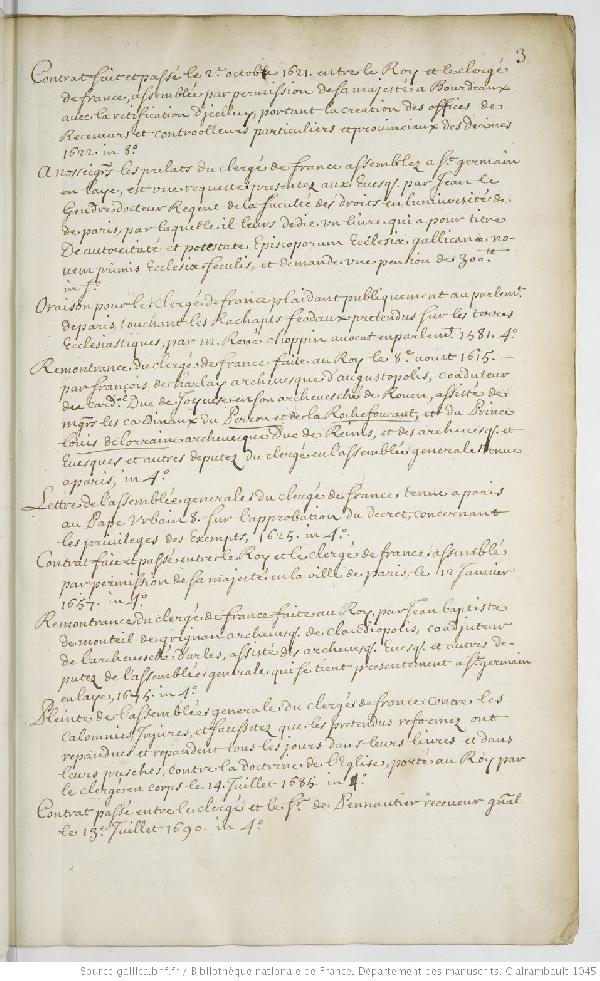 3
Contrat fait et passé le 2e octobre 1621. entre le Roy et le clergé
de france, assemblée par permission de sa majesté a Bourdeaux
avec la ratification d'icelluy, portant la creation des offices de
Receveurs et controolleurs particuliers et provinciaux des decimes
1622. in 8.º
A nosseigrs les prelats du clergé de france assemblez a St. germain
en laye, est une requeste presentée aux Evesq. par Jean le
Gendre docteur Regent de la faculté des droits en l'université de
de paris, par laquelle il leurs dedie un livre qui a pour titre
De autoritate et potestate Episcoporum Ecclesiæ gallicanæ no-
vem primis Ecclesiæ seculis, et demande une pension de 300.tt
in fº
Oraison pour le Clergé de france plaidant publiquement au parlemt.
de paris, touchant les Rachapts feodaux pretendus sur les terres
Ecclesiastiques, par m. René Choppin avocat en parlemt. 1581. 4.º
Remontrance du clergé de france faite au Roy le 8.e aoust 1615.
par francois de harlay archevesque d'augustopolis, coaduteur
du Card.al Duc de Joyeuse en son archevesché de Rouen, assisté de
mgrs les cardinaux du Perron et de la Rochefoucaut, et du Prince
Louis de lorraine archevesque Duc de Reims, et des archevesq. et
Evesques et autres deputez du clergé en l'assemblée generale tenue
a paris, in 4.º
Lettre de l'assemblée generale du clergé de france tenue a paris
au Pape Urbain 8. sur l'approbation du decret, concernant
les privileges des Exempts, 1625. in 4.º
Contrat fait et passé entre le Roy et le clergé de france assemblé
par permission de sa majesté en la ville de paris, le 12 Janvier
1657. in 4.º
Remontrance du clergé de france faite au Roy, par Jean baptiste
de monteil de grignan archevesq. de Claudiopolis, coadjuteur
de l'archevesché d'arles, assisté des archevesq. Evesq. et autres de-
putez de l'assemblée generale qui se tient presentement a St. germain
en laye, 1675. in 4.º
Plainte de l'assemblée generale du clergé de france contre les
calomnies, Injures, et faussetez que les pretendus reformez ont
repandues et repandent tous les jours dans leurs livres et dans
leurs presches, contre la doctrine de l'Eglise, porté au Roy par
le clergé en corps le 14. Juillet 1685. in 4.º
Contrat passé entre le clergé et le Sr. de Pennautier receveur gñal
le 13.e Juillet 1690. in 4.º
Source gallica.bnf.fr / Bibliothèque nationale de France. Département des manuscrits. Clairambault 1045